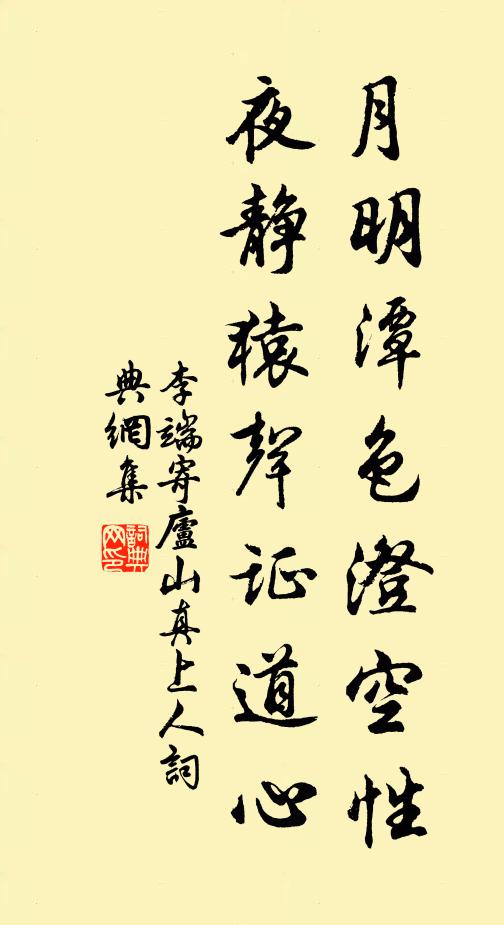 月明潭色澄空性
夜静猿聲证道心
李端寄廬山真上人詞
典網集
詞典
网印